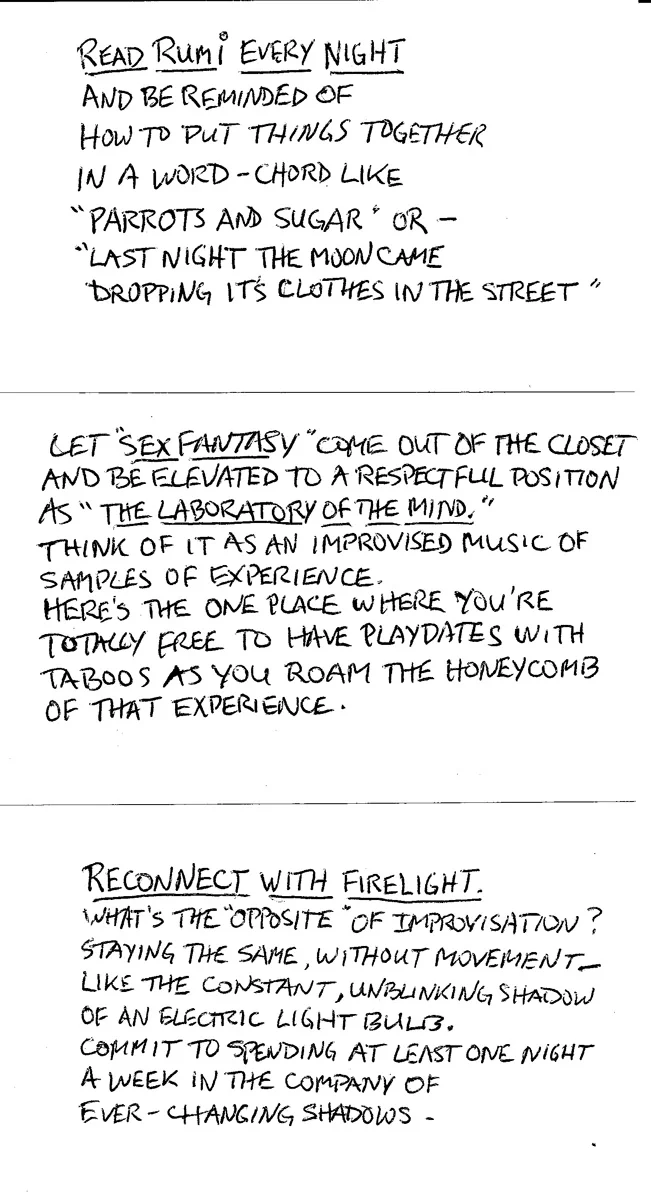 READ RUMI EVERY NIGHT
AND BE REMINDED OF
HOW TO PUT THINGS TOGETHER
IN A WORD-CHORD LIKE
"PARROTS AND SUGAR" OR -
"LAST NIGHT THE MOON CAME
DROPPING IT'S CLOTHES IN THE STREET"
LET "SEX FANTASY" COME OUT OF THE CLOSET
AND BE ELEVATED TO A RESPECTFULL POSITION
AS "THE LABORATORY OF THE MIND."
THINK OF IT AS AN IMPROVISED MUSIC OF
SAMPLES OF EXPERIENCE.
HERE'S THE ONE PLACE WHERE YOU'RE
TOTALLY FREE TO HAVE PLAYDATES WITH
TABOOS AS YOU ROAM THE HONEYCOMB
OF THAT EXPERIENCE.
RECONNECT WITH FIRELIGHT.
WHAT'S THE "OPPOSITE" OF IMPROVISATION?
STAYING THE SAME, WITHOUT MOVEMENT—
LIKE THE CONSTANT, UNBLINKING SHADOW
OF AN ELECTRIC LIGHT BULB.
COMMIT TO SPENDING AT LEAST ONE NIGHT
A WEEK IN THE COMPANY OF
EVER-CHANGING SHADOWS -